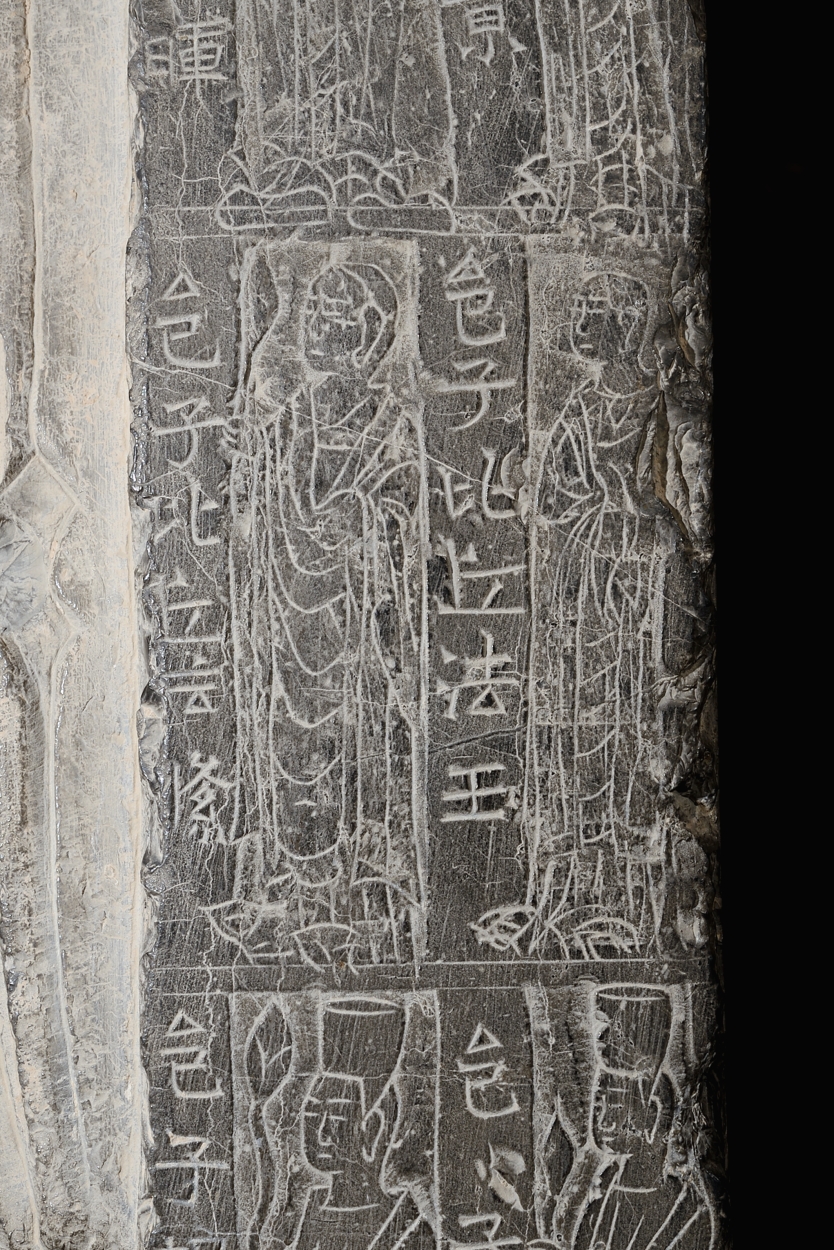 暉
邑子比丘法王
邑子比丘
邑子
邑子